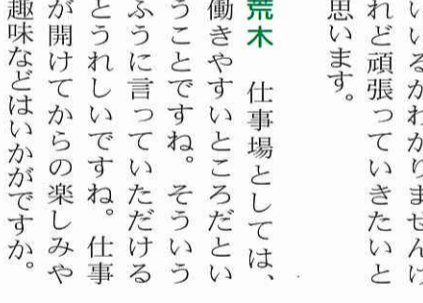 いいるかわかりませんけ
れど頑張っていきたいと
思います。
荒木 仕事場としては、
働きやすいところだとい
うことですね。そういう
ふうに言っていただける
とうれしいですね。仕事
が開けてからの楽しみや
趣味などはいかがですか。